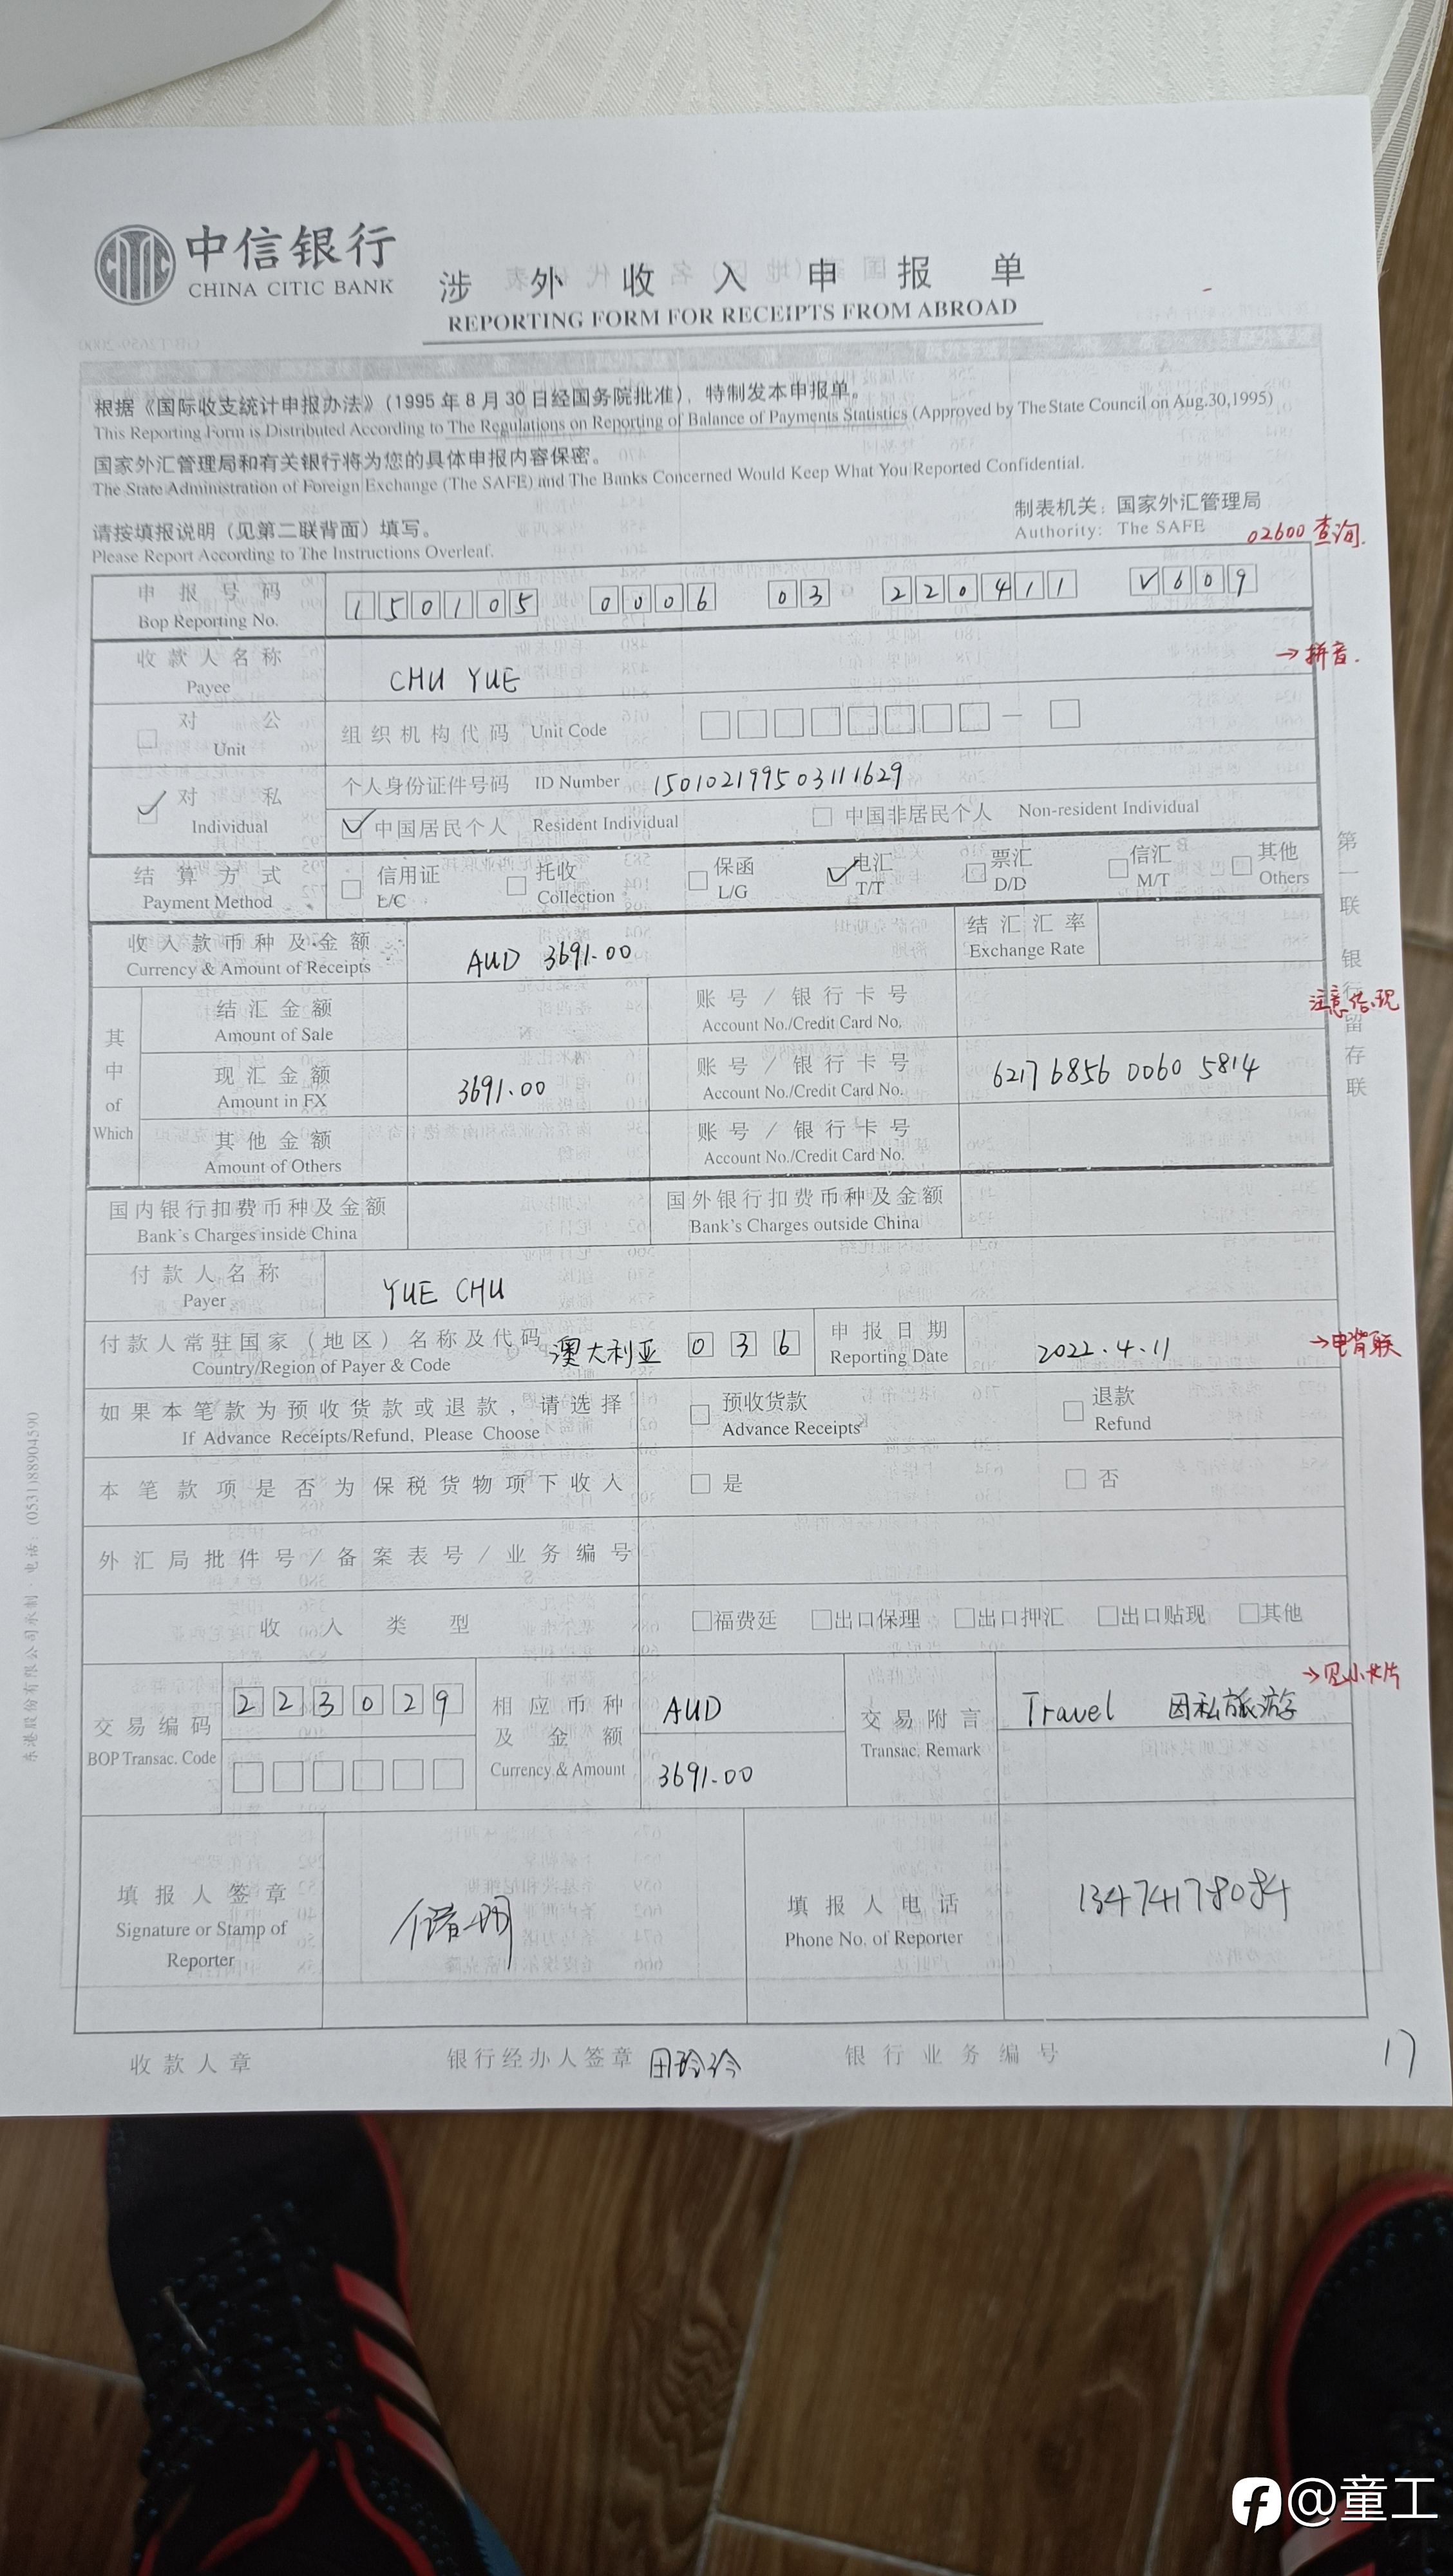 中信银行
CHINA CITIC BANK
涉外收入申报单
REPORTING FORM FOR RECEIPTS FROM ABROAD
根据《国际收支统计申报办法》(1995年8月30日经国务院批准),特制发本申报单。
This Reporting Form is Distributed According to The Regulations on Reporting of Balance of Payments Statistics (Approved by The State Council on Aug.30,1995)
国家外汇管理局和有关银行将为您的具体申报内容保密。
The State Administration of Foreign Exchange (The SAFE) and The Banks Concerned Would Keep What You Reported Confidential.
制表机关:国家外汇管理局
请按填报说明(见第二联背面)填写。
Authority: The SAFE
Please Report According to The Instructions Overleaf.
02600 查询.
申报号码 150105 0006 03 220411 V609
Bop Reporting No.
收款人名称 CHU YUE → 拼音.
Payee
对公 组织机构代码 Unit Code —
Unit
对私 个人身份证件号码 ID Number 150102199503111629
Individual 中国居民个人 Resident Individual 中国非居民个人 Non-resident Individual
结算方式 信用证 托收 保函 电汇 票汇 信汇 其他
Payment Method L/C Collection L/G T/T D/D M/T Others
收入款币种及金额 AUD 3691.00 结汇汇率
Currency & Amount of Receipts Exchange Rate
其中 of Which
结汇金额 账号/银行卡号
Amount of Sale Account No./Credit Card No.
现汇金额 3691.00 账号/银行卡号 6217 6856 0060 5814
Amount in FX Account No./Credit Card No.
其他金额 账号/银行卡号
Amount of Others Account No./Credit Card No.
国内银行扣费币种及金额 国外银行扣费币种及金额
Bank's Charges inside China Bank's Charges outside China
付款人名称 YUE CHU
Payer
付款人常驻国家(地区)名称及代码 澳大利亚 036 申报日期 2022.4.11
Country/Region of Payer & Code Reporting Date
如果本笔款为预收货款或退款,请选择 预收货款 退款
If Advance Receipts/Refund, Please Choose Advance Receipts Refund
本笔款项是否为保税货物项下收入 是 否
外汇局批件号/备案表号/业务编号
收入类型 福费廷 出口保理 出口押汇 出口贴现 其他
→ 见小卡片
交易编码 223029 相应币种及金额 AUD 交易附言 Travel 因私旅游
BOP Transac. Code Currency & Amount 3691.00 Transac. Remark
填报人签章 填报人电话 13474178084
Signature or Stamp of Reporter Phone No. of Reporter
收款人章 银行经办人签章 田玲玲 银行业务编号
17
第一联 银行留存联
东港股份有限公司承制·电话:(0531)88904590
@童工